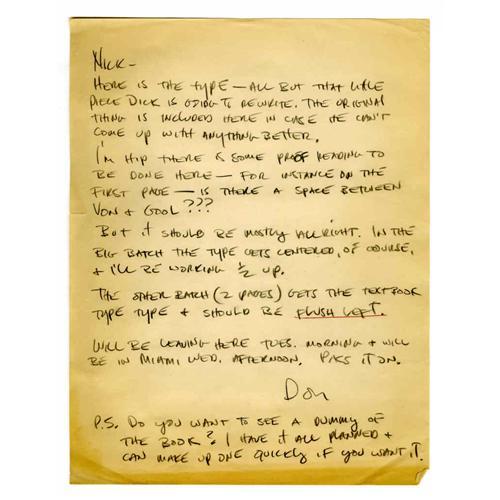 NICK—
HERE IS THE TYPE — ALL BUT THAT LITTLE
PIECE DICK IS GOING TO REWRITE. THE ORIGINAL
THING IS INCLUDED HERE IN CASE HE CAN'T
COME UP WITH ANYTHING BETTER.
I'M HIP THERE IS SOME PROOF READING TO
BE DONE HERE — FOR INSTANCE ON THE
FIRST PAGE — IS THERE A SPACE BETWEEN
VON & GOOL???
BUT IT SHOULD BE MOSTLY ALLRIGHT. IN THE
BIG BATCH THE TYPE GETS CENTERED, OF COURSE,
& I'LL BE WORKING ½ UP.
THE OTHER BATCH (2 PAGES) GETS THE TEXTBOOK
TYPE TYPE & SHOULD BE FLUSH LEFT.
WILL BE LEAVING HERE TUES. MORNING & WILL
BE IN MIAMI WED. AFTERNOON. PASS IT ON.
DON
P.S. DO YOU WANT TO SEE A DUMMY OF
THE BOOK? I HAVE IT ALL PLANNED &
CAN MAKE UP ONE QUICKLY IF YOU WANT IT.